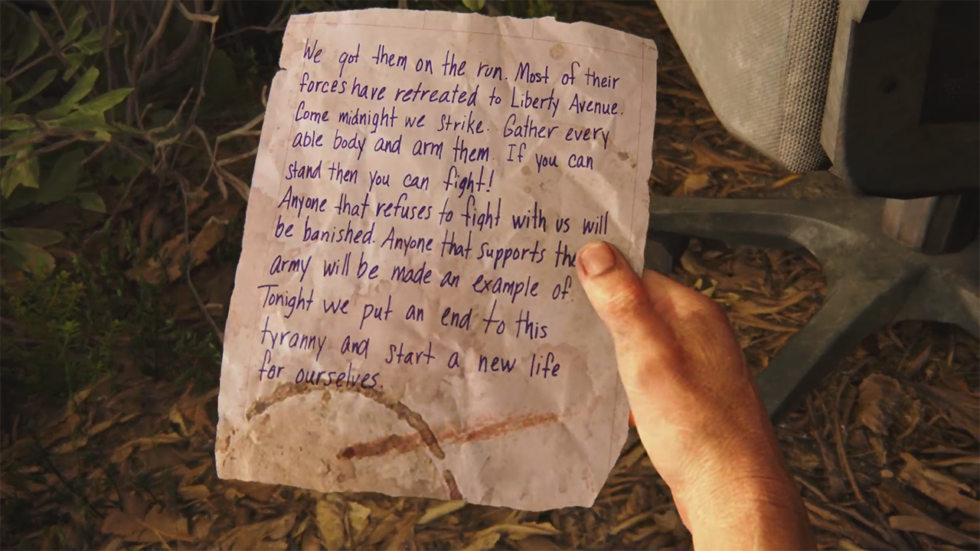 We got them on the run. Most of their
forces have retreated to Liberty Avenue.
Come midnight we strike. Gather every
able body and arm them. If you can
stand then you can fight!
Anyone that refuses to fight with us will
be banished. Anyone that supports the
army will be made an example of.
Tonight we put an end to this
tyranny and start a new life
for ourselves.